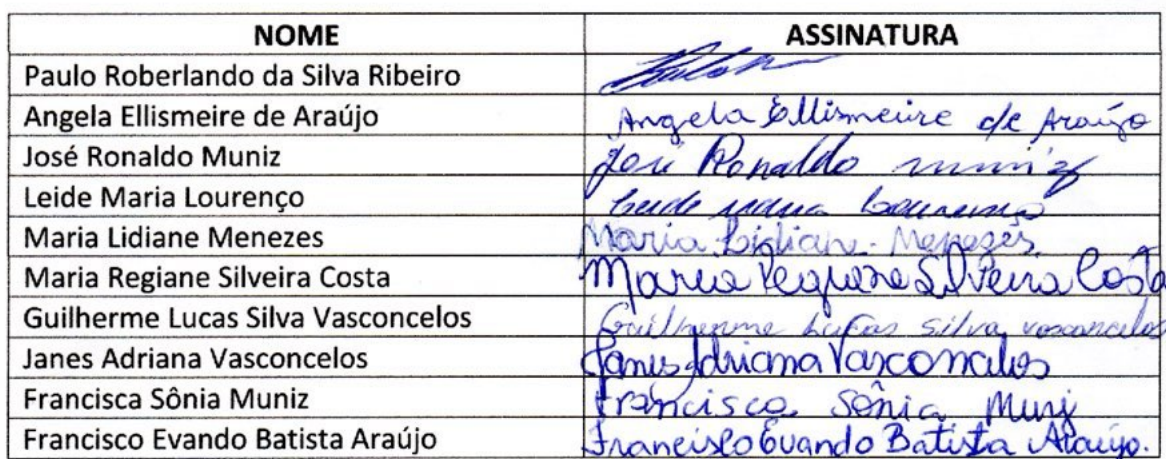 NOME ASSINATURA
Paulo Roberlando da Silva Ribeiro
Angela Ellismeire de Araújo Angela Ellismeire de Araújo
José Ronaldo Muniz José Ronaldo muniz
Leide Maria Lourenço Leide maria Lourenço
Maria Lidiane Menezes Maria Lidiane Menezes
Maria Regiane Silveira Costa Maria Regiane Silveira Costa
Guilherme Lucas Silva Vasconcelos Guilherme Lucas Silva vasconcelos
Janes Adriana Vasconcelos Janes Adriana Vasconcelos
Francisca Sônia Muniz Francisca Sônia Muniz
Francisco Evando Batista Araújo Francisco Evando Batista Araújo.